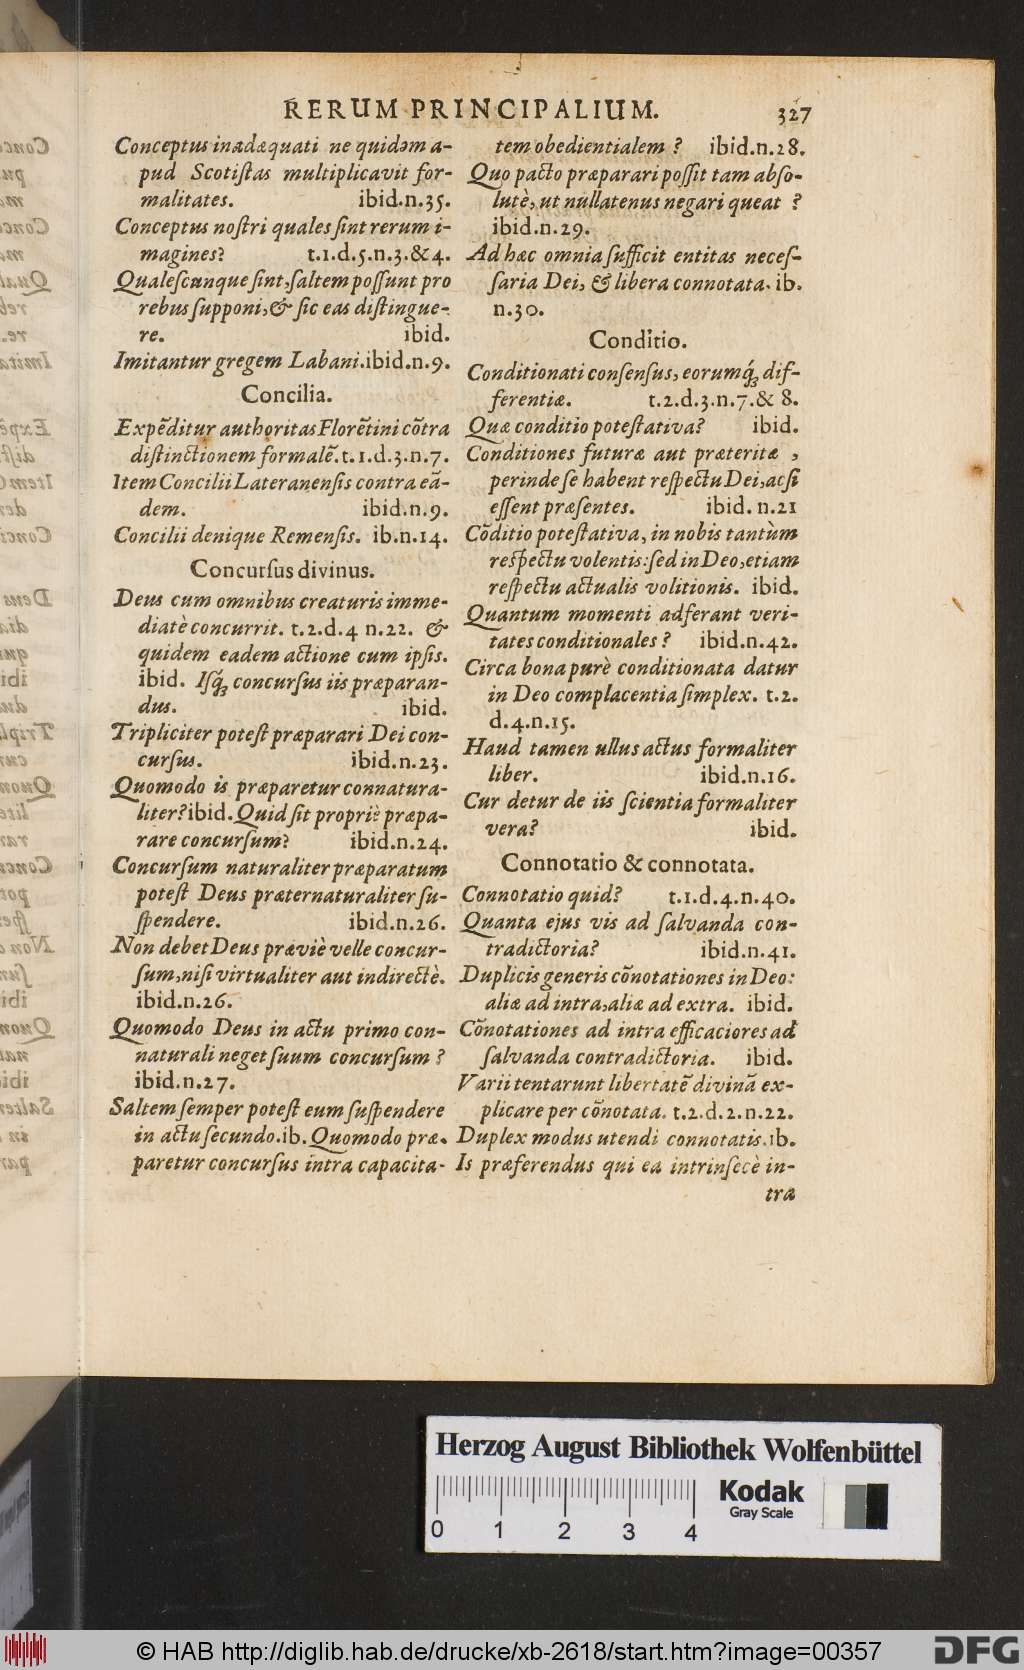 RERUM PRINCIPALIUM. 327
Conceptus inadæquati ne quidem a-
pud Scotiſtas multiplicavit for-
malitates. ibid.n.35.
Conceptus noſtri quales ſint rerum i-
magines? t.1.d.5.n.3.&4.
Qualeſcunque ſint, ſaltem poſſunt pro
rebus ſupponi, & ſic eas diſtingue-
re. ibid.
Imitantur gregem Labani. ibid.n.9.
Concilia.
Expẽditur authoritas Florẽtini cõtra
diſtinctionem formalẽ. t.1.d.3.n.7.
Item Concilii Lateranenſis contra eã-
dem. ibid.n.9.
Concilii denique Remenſis. ib.n.14.
Concurſus divinus.
Deus cum omnibus creaturis imme-
diatè concurrit. t.2.d.4 n.22. &
quidem eadem actione cum ipſis.
ibid. Iſq́ꝫ concurſus iis præparan-
dus. ibid.
Tripliciter poteſt præparari Dei con-
curſus. ibid.n.23.
Quomodo is præparetur connatura-
liter? ibid. Quid ſit propriè præpa-
rare concurſum? ibid.n.24.
Concurſum naturaliter præparatum
poteſt Deus præternaturaliter ſu-
ſpendere. ibid.n.26.
Non debet Deus præviè velle concur-
ſum, niſi virtualiter aut indirectè.
ibid.n.26.
Quomodo Deus in actu primo con-
naturali neget ſuum concurſum?
ibid.n.27.
Saltem ſemper poteſt eum ſuſpendere
in actu ſecundo. ib. Quomodo præ-
paretur concurſus intra capacita-
tem obedientialem? ibid.n.28.
Quo pacto præparari poſſit tam abſo-
lutè, ut nullatenus negari queat?
ibid.n.29.
Ad hæc omnia ſufficit entitas neceſ-
ſaria Dei, & libera connotata. ib.
n.30.
Conditio.
Conditionati conſenſus, eorumq́ꝫ dif-
ferentiæ. t.2.d.3.n.7.& 8.
Quæ conditio poteſtativa? ibid.
Conditiones futuræ aut præteritæ,
perinde ſe habent reſpectu Dei, ac ſi
eſſent præſentes. ibid. n.21
Cõditio poteſtativa, in nobis tantùm
reſpectu volentis: ſed in Deo, etiam
reſpectu actualis volitionis. ibid.
Quantum momenti adferant veri-
tates conditionales? ibid.n.42.
Circa bona purè conditionata datur
in Deo complacentia ſimplex. t.2.
d.4.n.15.
Haud tamen ullus actus formaliter
liber. ibid.n.16.
Cur detur de iis ſcientia formaliter
vera? ibid.
Connotatio & connotata.
Connotatio quid? t.1.d.4.n.40.
Quanta ejus vis ad ſalvanda con-
tradictoria? ibid.n.41.
Duplicis generis cõnotationes in Deo:
aliæ ad intra, aliæ ad extra. ibid.
Cõnotationes ad intra efficaciores ad
ſalvanda contradictoria. ibid.
Varii tentarunt libertatẽ divinã ex-
plicare per cõnotata. t.2.d.2.n.22.
Duplex modus utendi connotatis. ib.
Is præferendus qui ea intrinſecè in-
tra
Herzog August Bibliothek Wolfenbüttel
0 1 2 3 4
Kodak
Gray Scale
© HAB http://diglib.hab.de/drucke/xb-2618/start.htm?image=00357
DFG